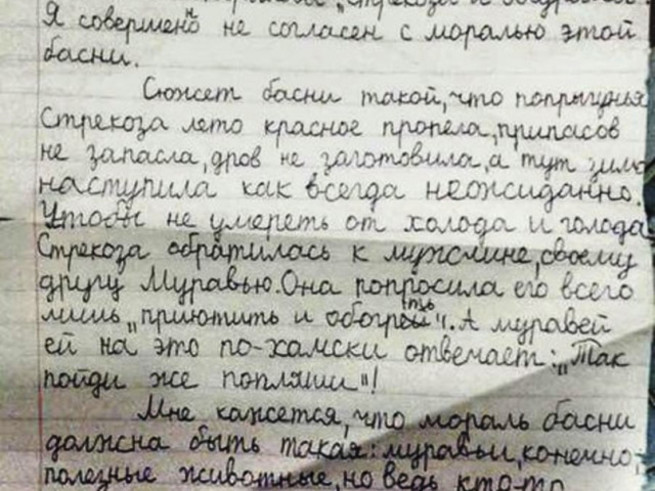 "Стрекоза и
Я совершенн не согласен с моралью этой
басни.
Сюжет басни такой, что попрыгунья
Стрекоза лето красное пропела, припасов
не запасла, дров не заготовила, а тут зима
наступила как всегда неожиданно.
Чтобы не умереть от холода и голода
Стрекоза обратилась к мужчине, своему
другу Муравью. Она попросила его всего
лишь „приютить и обогреть". А муравей
ей на это по-хамски отвечает: „Так
пойди же попляши"!
Мне кажется, что мораль басни
должна быть такая: муравьи, конечно,
полезные животные, но ведь кто-то